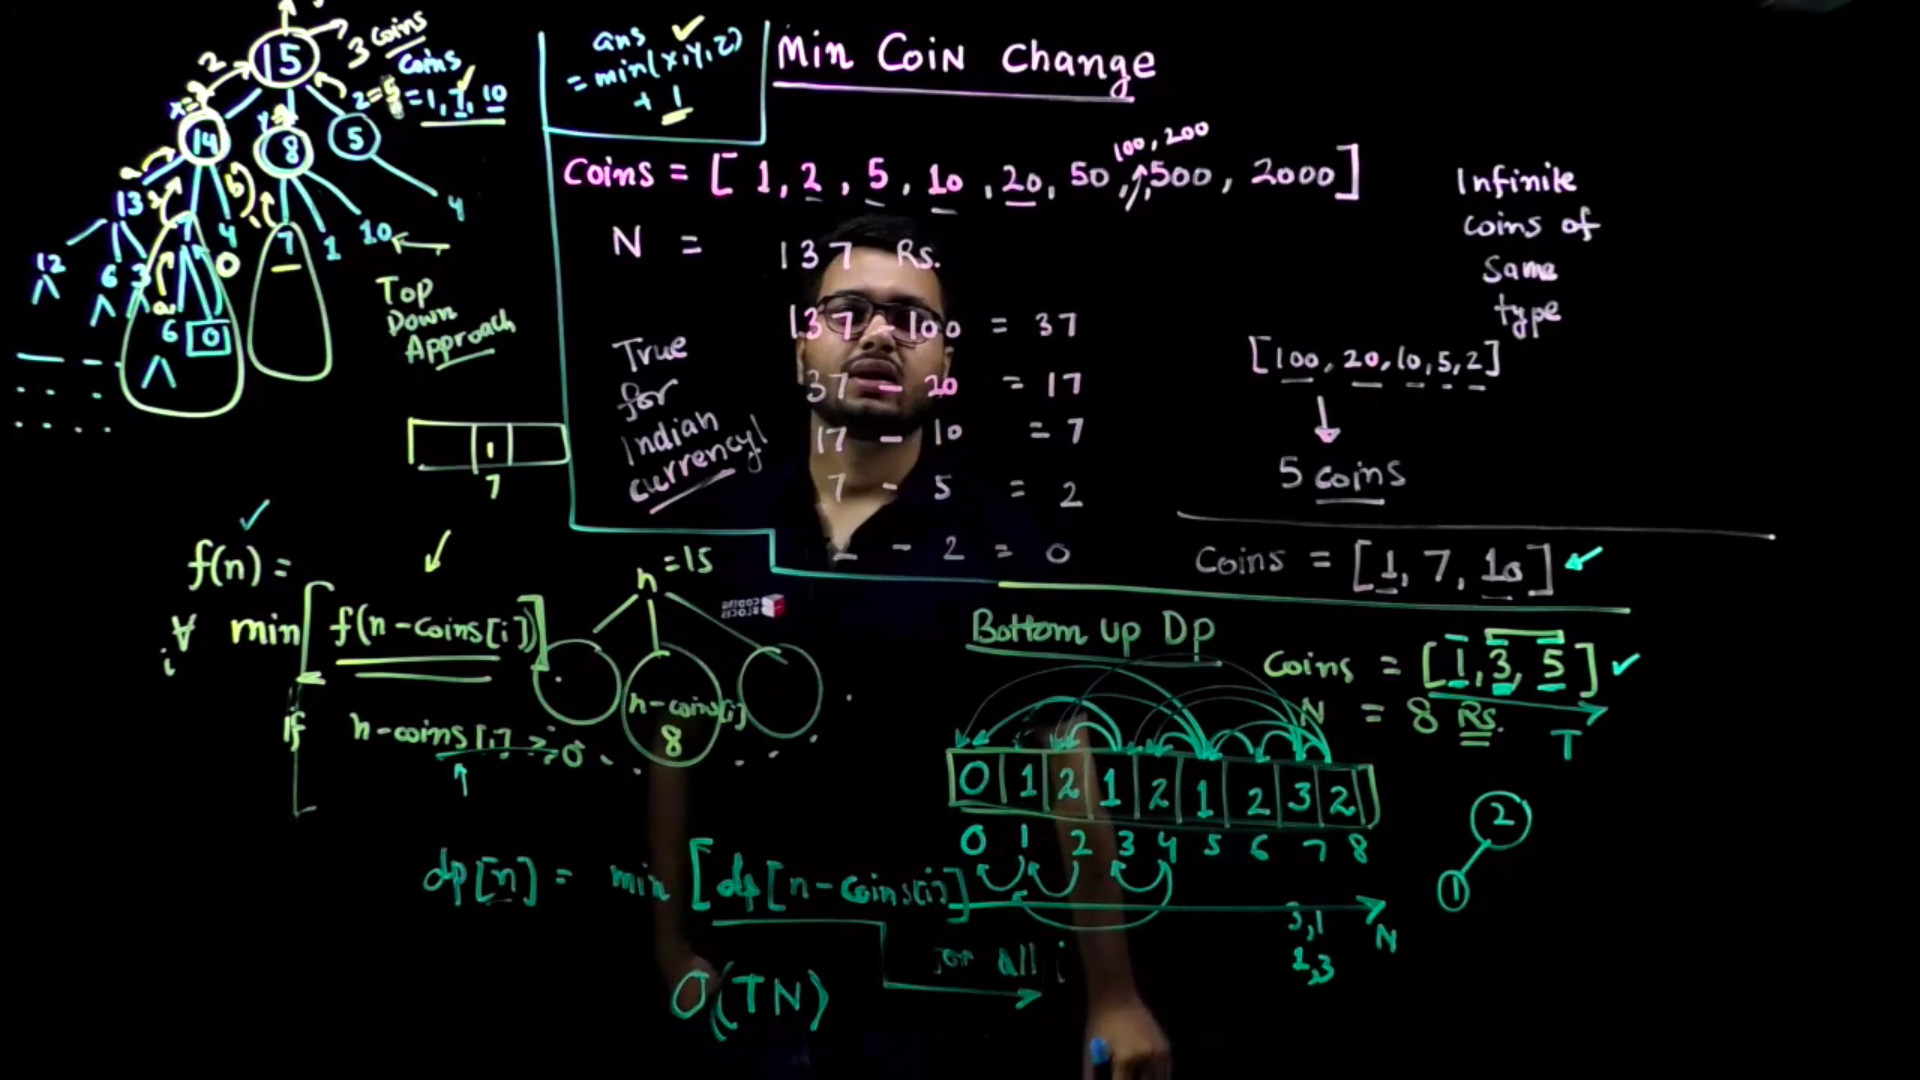 Min Coin Change
ans
= min(x,y,z)
+ 1
15
3 coins
coins
= 1, 7, 10
2
14
8
5
13
7
4
7
1
10
4
12
6
3
0
6
0
Top
Down
Approach
1
7
100, 200
Coins = [ 1, 2, 5, 10, 20, 50, , 500, 2000]
N = 137 Rs.
137 - 100 = 37
37 - 20 = 17
17 - 10 = 7
7 - 5 = 2
- 2 = 0
True
for
Indian
currency!
Infinite
coins of
same
type
[100, 20, 10, 5, 2]
5 coins
Coins = [1, 7, 10]
f(n) =
∀ min[ f(n-coins[i])]
i
If n-coins[i] >= 0
n =15
n-coins[i]
8
CODING
BLOCKS
Bottom up Dp
Coins = [1, 3, 5]
N = 8 Rs.
T
0 1 2 1 2 1 2 3 2
0 1 2 3 4 5 6 7 8
2
1
dp[n] = min [dp[n-coins[i]]
N
for all i
O(TN)